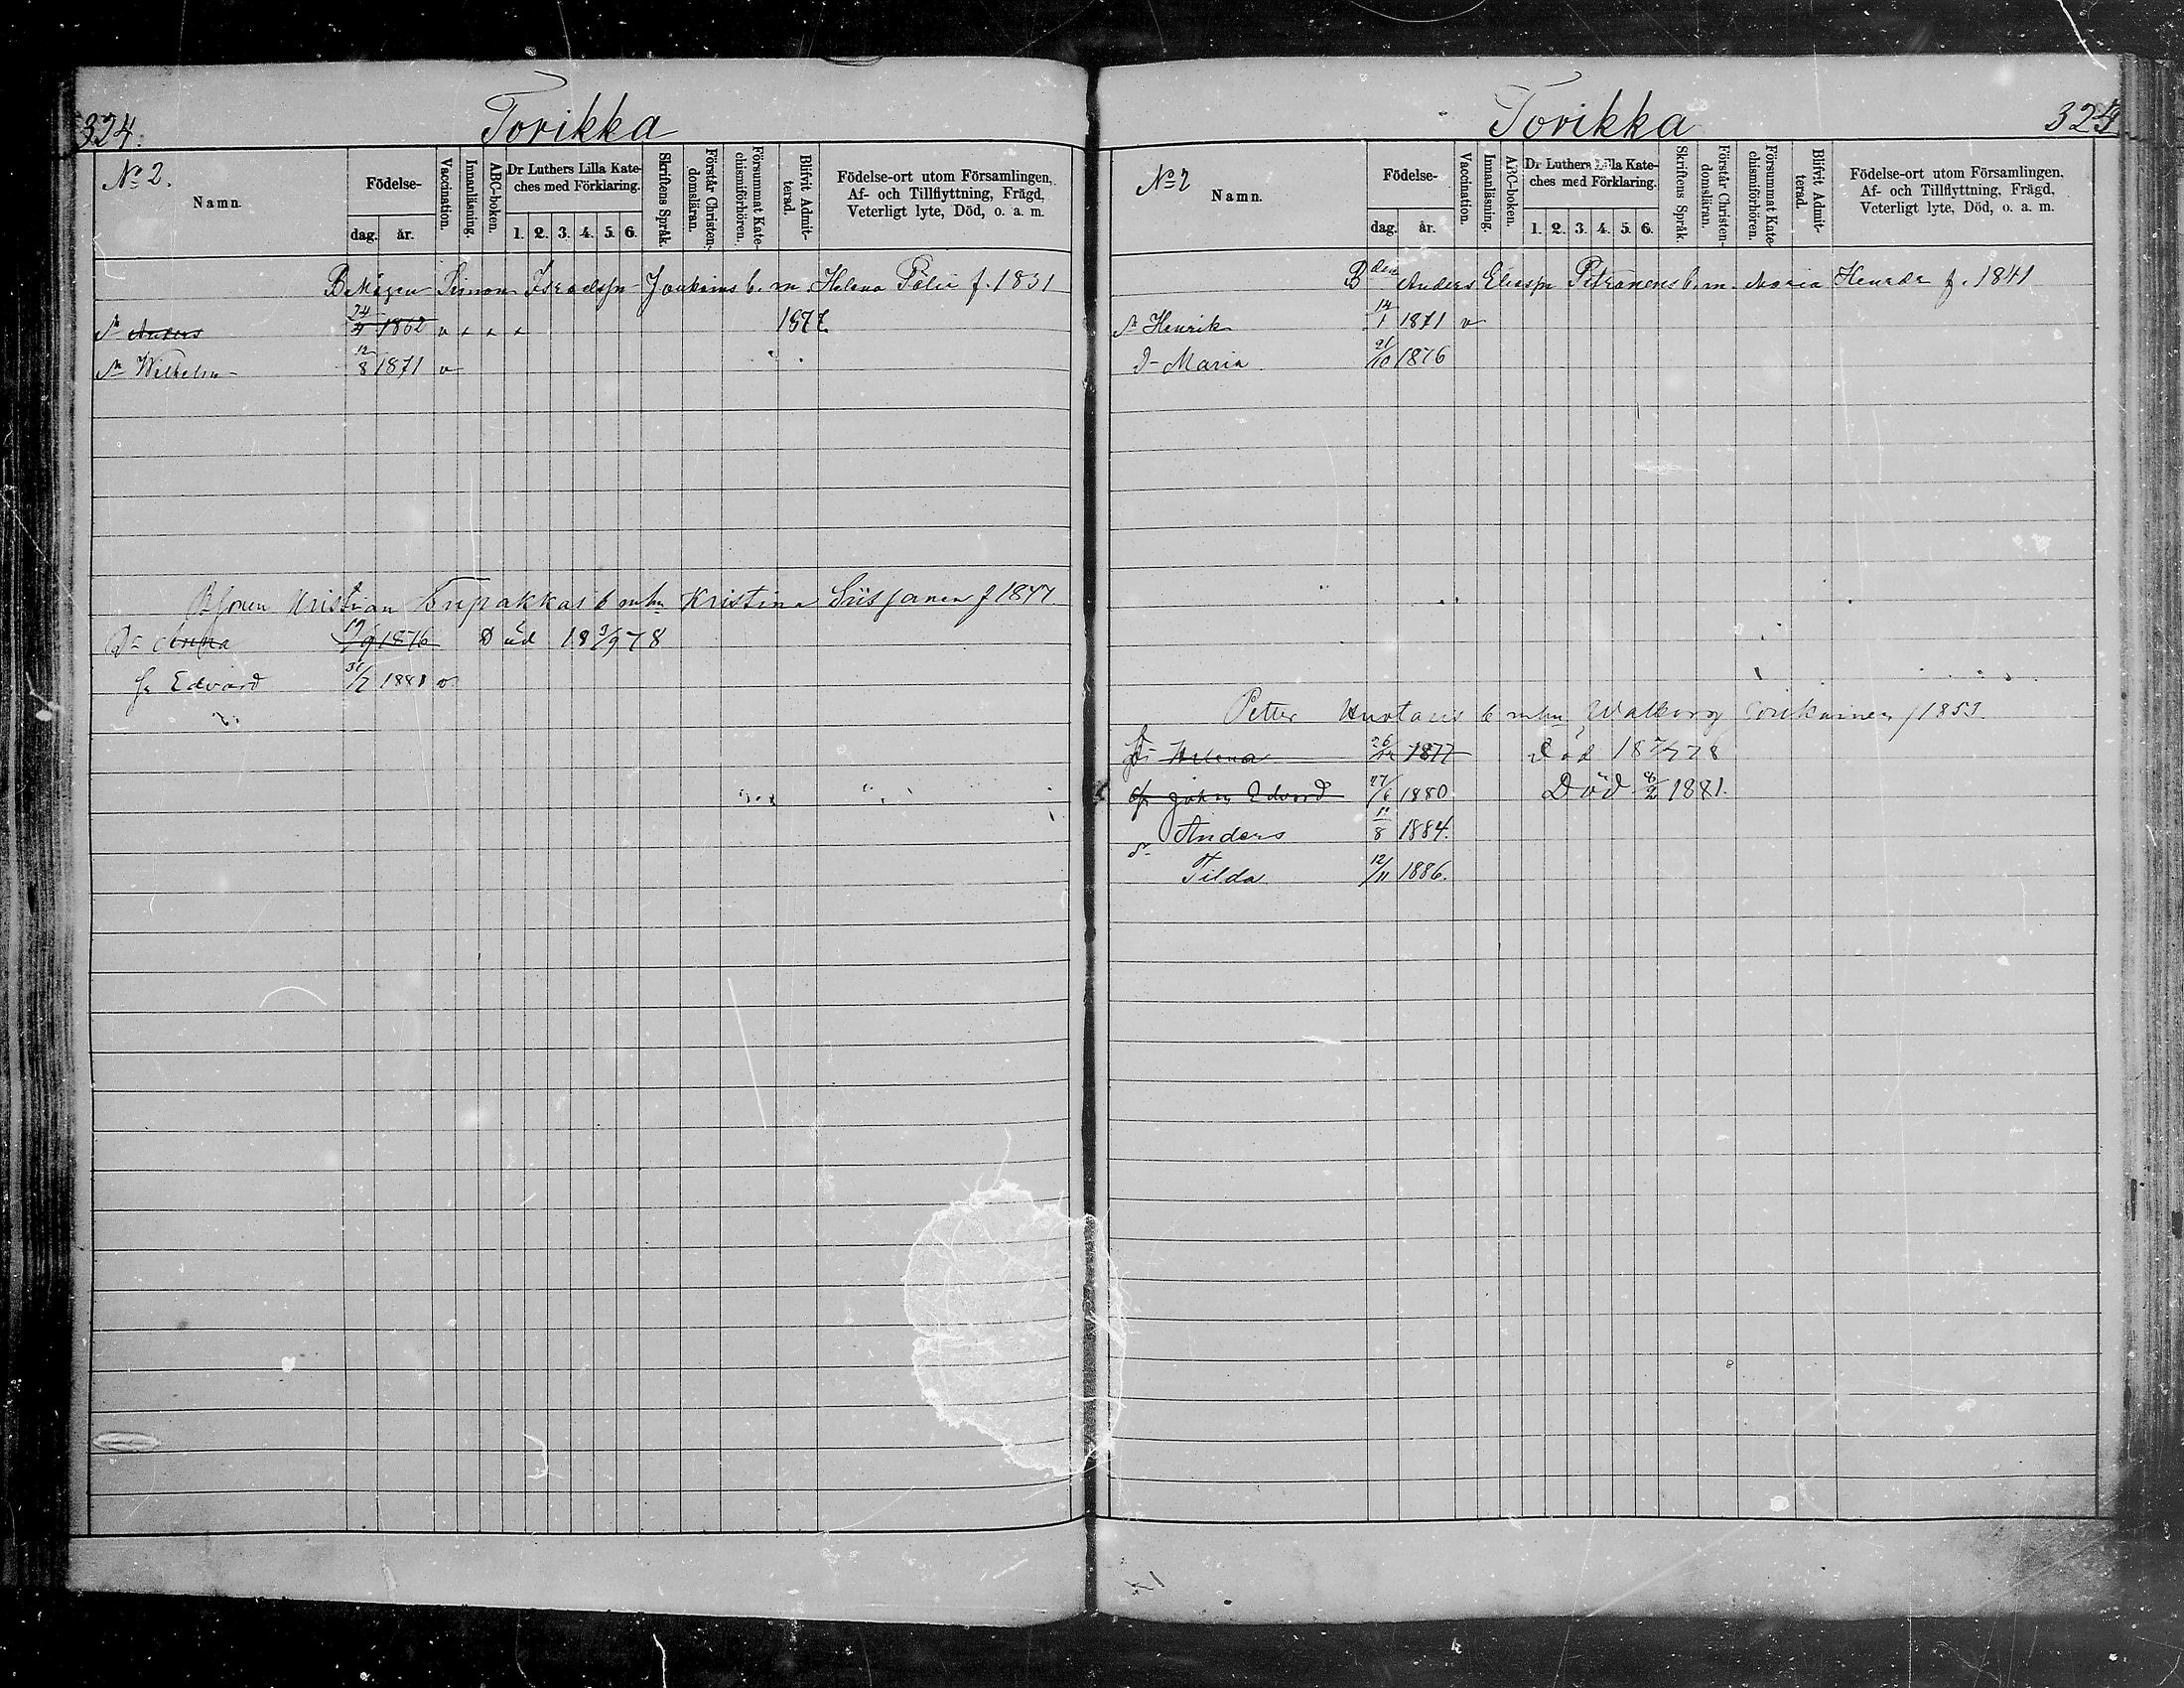 324.
Torikka
No 2.
Namn.
Födelse-
dag.
år.
Vaccination.
Innanläsning.
ABC-boken.
Dr Luthers Lilla Kate-
ches med Förklaring.
1. 2. 3. 4. 5. 6.
Skriftens Språk.
Förstår Christen-
domsläran.
Försummat Kate-
chismiförhören.
Blifvit Admit-
terad.
Födelse-ort utom Församlingen,
Af- och Tillflyttning, Frägd,
Veterligt lyte, Död, o. a. m.
Simon b. m. Helena f. 1831
Sn Anders 24/4 1862 1877
Sn Wilhelm 12/8 1871 v
Kristian b mhn Kristina f 1847
Dr Anna 19/9 1876 Död 18 3/9 78
Sn Edvard 31/7 1881 v
Torikka
324
No 2
Namn.
Födelse-
dag.
år.
Vaccination.
Innanläsning.
ABC-boken.
Dr Luthers Lilla Kate-
ches med Förklaring.
1. 2. 3. 4. 5. 6.
Skriftens Språk.
Förstår Christen-
domsläran.
Försummat Kate-
chismiförhören.
Blifvit Admit-
terad.
Födelse-ort utom Församlingen,
Af- och Tillflyttning, Frägd,
Veterligt lyte, Död, o. a. m.
Bden Anders Eliasn b. m. Maria Henrdr f. 1841
Sn Henrik 14/1 1871 v
D- Maria 21/10 1876
Petter b mhn Walborg f 1853.
Helena 1877 Död
Johan Edvard 17/6 1880 Död 8/2 1881.
Sn Anders 11/8 1884.
Tilda 12/11 1886.